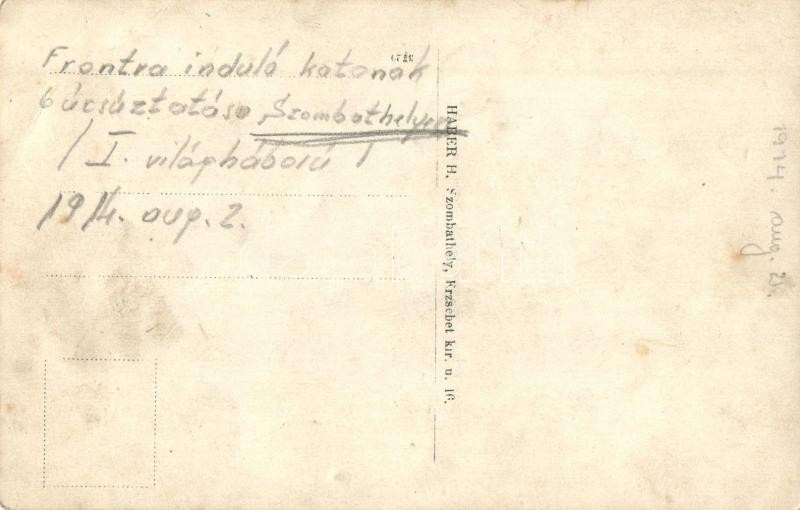 Frontra induló katonák
búcsúztatása Szombathelyen
/ I. világháború /
1914. aug. 2.
HABER H. Szombathely, Erzsébet kir. u. 16.
1914. aug. 2.